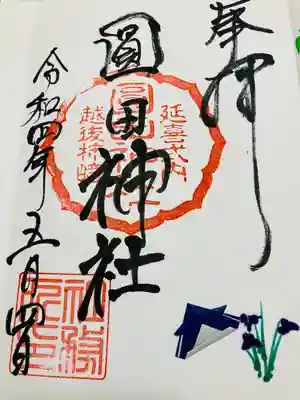 奉拝
延喜式内
圓田神社
越後柿崎
令和四年五月四日